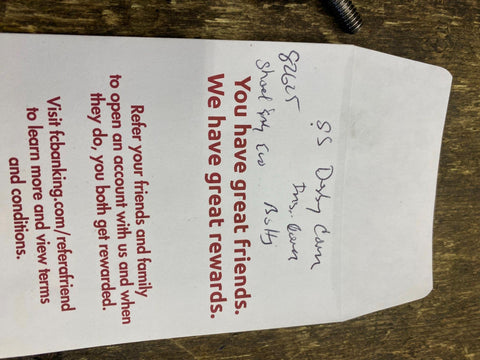 82625
85 Derby Cam
Ins. Cover
Bolts
You have great friends.
We have great rewards.
Refer your friends and family
to open an account with us and when
they do, you both get rewarded.
Visit fcbanking.com/referafriend
to learn more and view terms
and conditions.